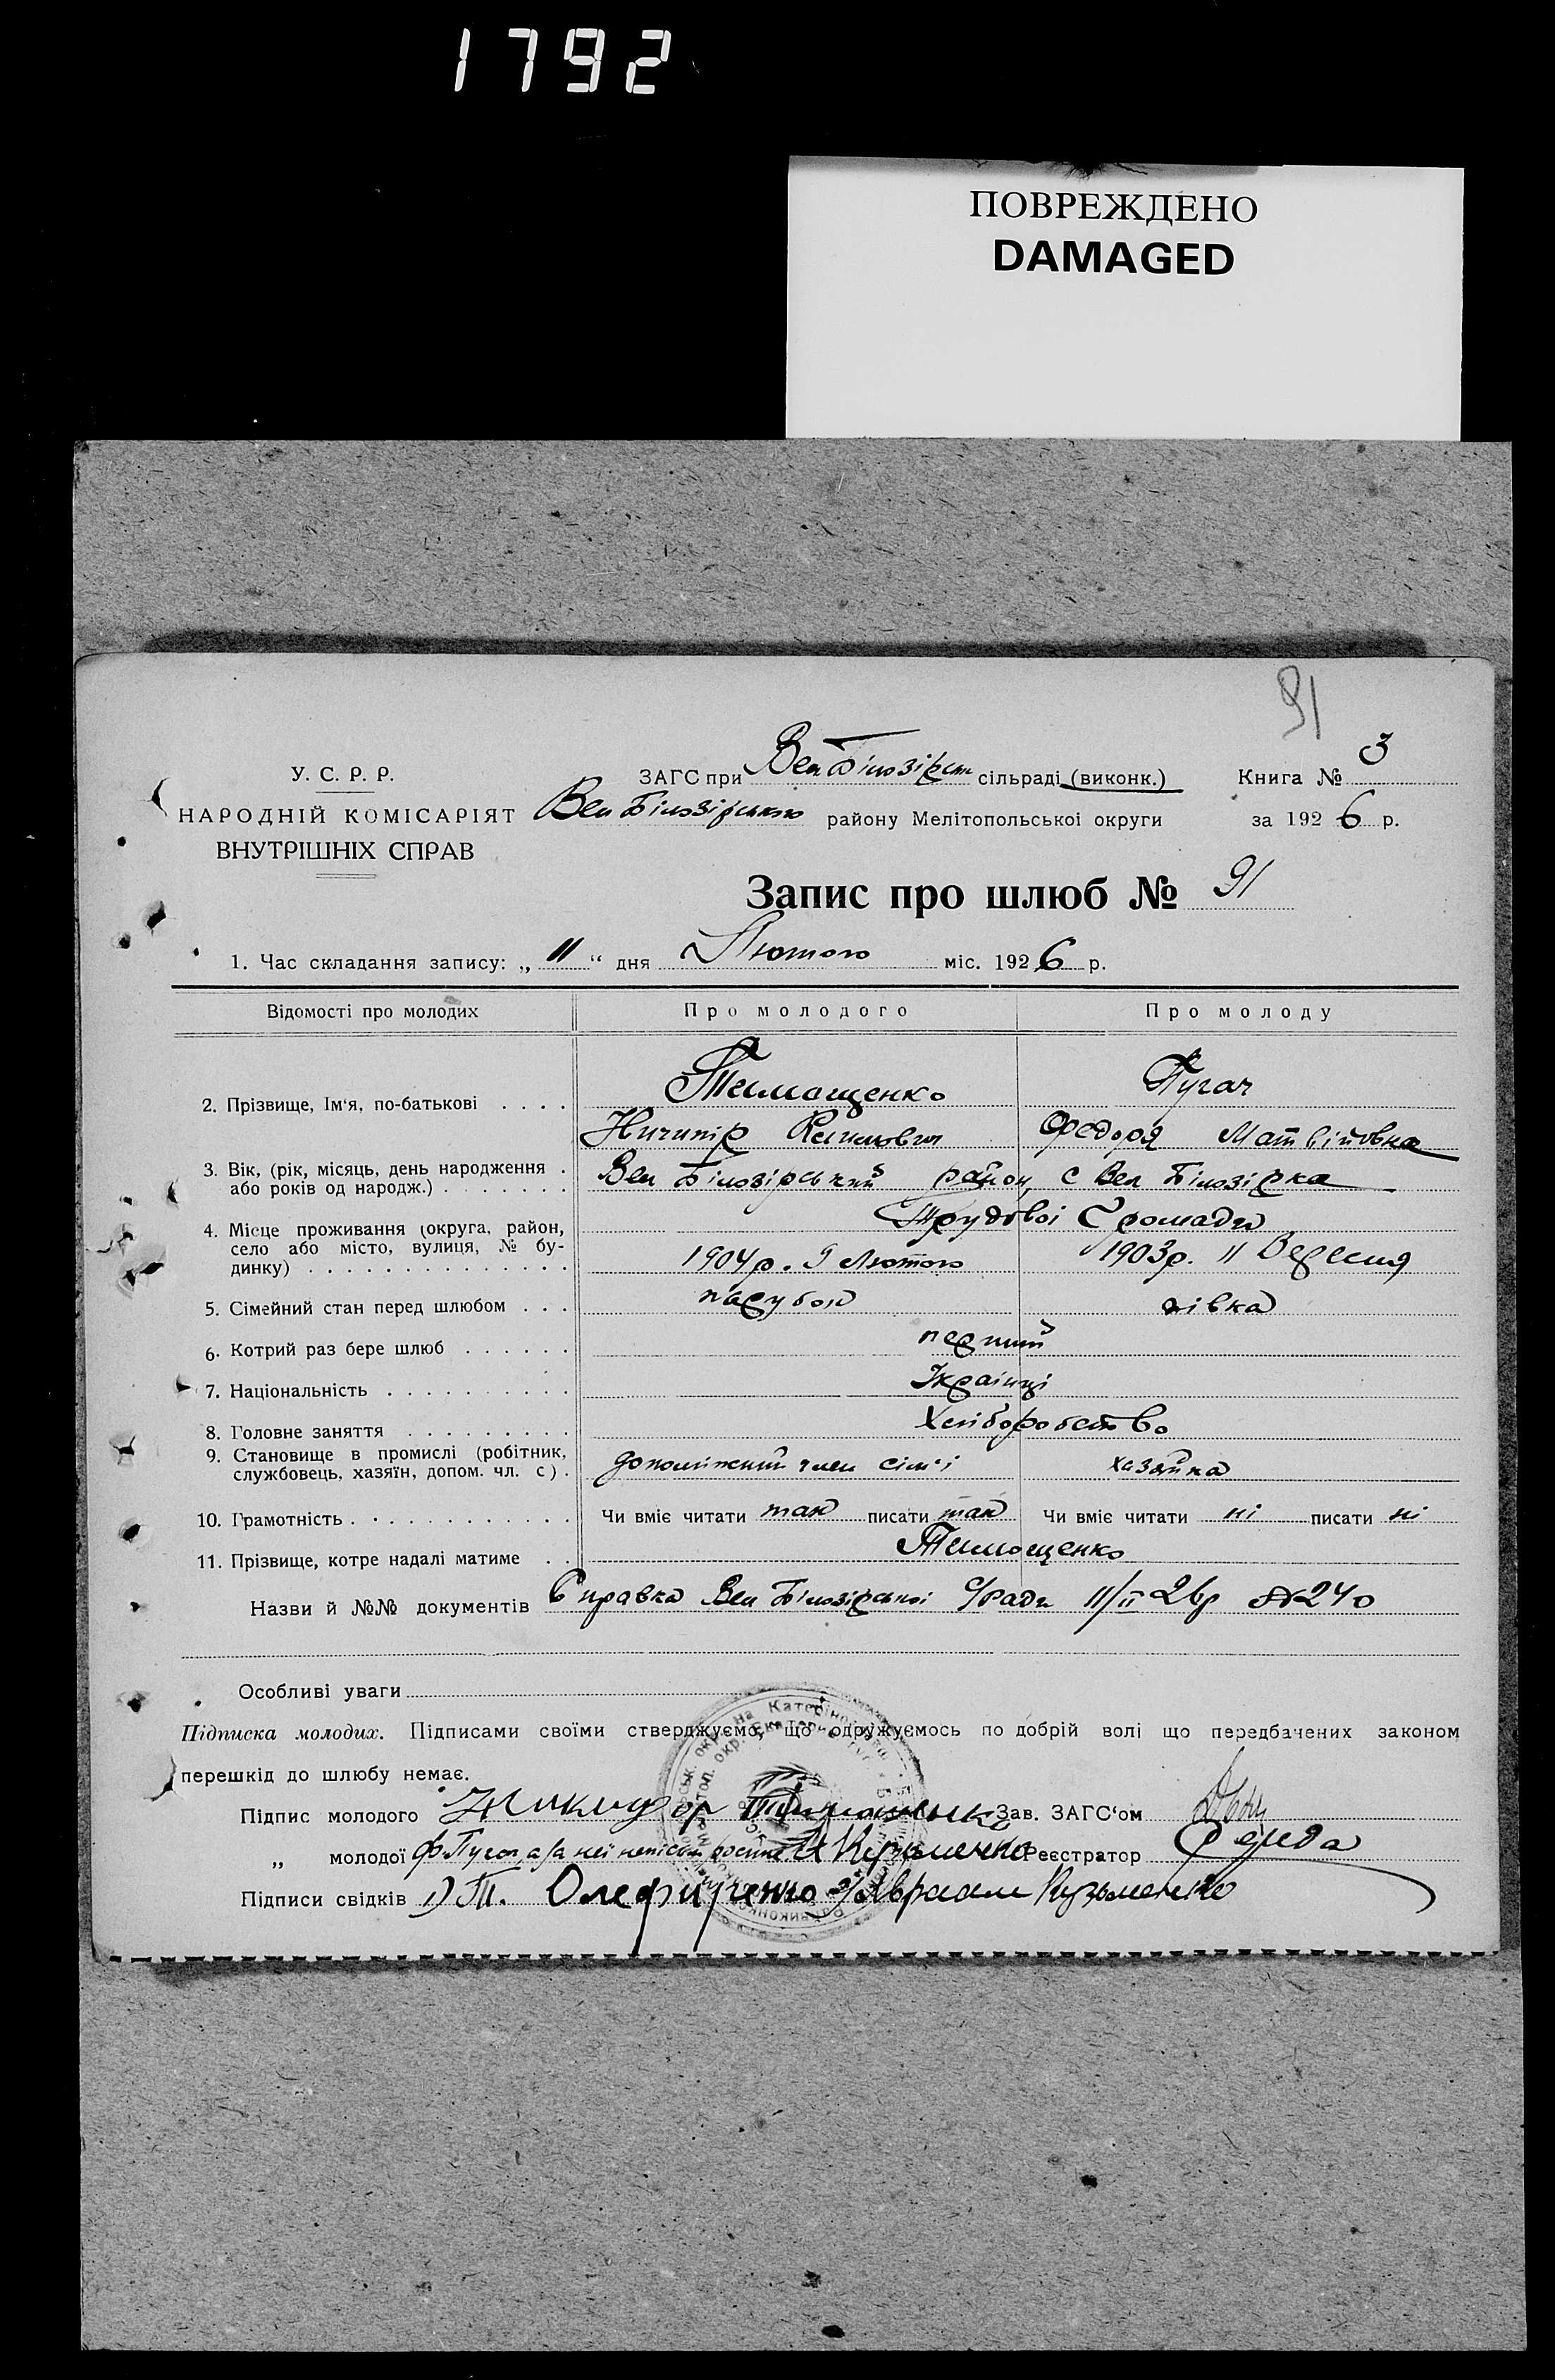 1792
ПОВРЕЖДЕНО
DAMAGED
91
У. С. Р. Р.
НАРОДНІЙ КОМІСАРІЯТ
ВНУТРІШНІХ СПРАВ
ЗАГС при Вел Білозірськ сільраді (виконк.) Книга № 3
Вел Білозірського району Мелітопольської округи за 1926 р.
Запис про шлюб № 91
1. Час складання запису: „ 11 “ дня Лютого міс. 1926 р.
Відомості про молодих Про молодого Про молоду
2. Прізвище, Ім‘я, по-батькові . . . . Тимощенко Пугач
Ничипір Федоря Матвійовна
3. Вік, (рік, місяць, день народження .
або років од народж.) . . . . . . . Вел Білозірський район, с Вел Білозірка
4. Місце проживання (округа, район,
село або місто, вулиця, № бу-
динку) . . . . . . . . . . . . . .
Трудової Громади
1904р. 9 Лютого 1903р. 11 Вересня
5. Сімейний стан перед шлюбом . . . парубок дівка
6. Котрий раз бере шлюб . . . . . . перший
7. Національність . . . . . . . . . . Українці
8. Головне заняття . . . . . . . . . Хліборобство
9. Становище в промислі (робітник,
службовець, хазяїн, допом. чл. с) . допоміжний член сім'ї хазяйка
10. Грамотність . . . . . . . . . . . . Чи вміє читати так писати так Чи вміє читати ні писати ні
11. Прізвище, котре надалі матиме . . Тимощенко
Назви й №№ документів Справка Вел Білозірської С/ради 11/II 26р № 240
Особливі уваги
Підписка молодих. Підписами своїми стверджуємо, що одружуємось по добрій волі що передбачених законом
перешкід до шлюбу немає.
Підпис молодого Зав. ЗАГС‘ом
„ молодої Ф. Пугач, а за неї Кузьменко Реєстратор Середа
Підписи свідків 1) Т. Олефиренко 2) Авраам Кузьменко